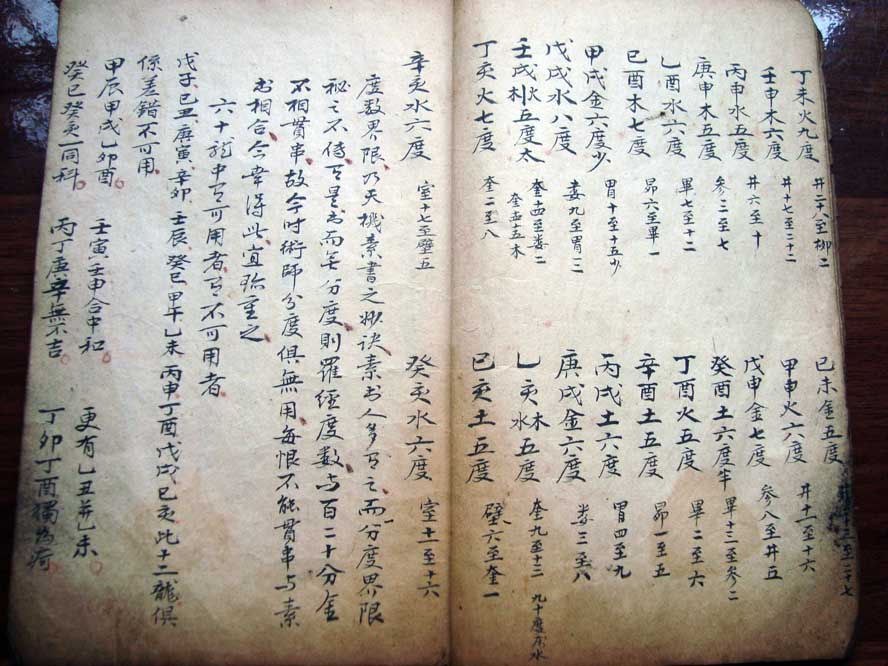 丁未火九度 井二十八至柳二 己未金五度 井二十三至二十七
壬申木六度 井十七至二十二 甲申火六度 井十一至十六
丙申水五度 井六至十 戊申金七度 参八至井五
庚申木五度 参二至七 癸酉土六度半 畢十三至参二
乙酉水六度 畢七至十二 丁酉火五度 畢二至六
己酉木七度 昴六至畢一 辛酉土五度 昴一至五
甲戌金六度少 胃十至十五少 丙戌土六度 胃四至九
戊戌水八度 婁九至胃三 庚戌金六度 婁三至八
壬戌火木五度太 奎十四至婁二 奎十五木 乙亥木水五度 奎九至十三 九十度木水
丁亥火七度 奎二至八 己亥土五度 壁六至奎一
辛亥水六度 室十七至壁五 癸亥水六度 室十一至十六
度数界限乃天機素書之妙诀素书人多有之而分度界限
秘之不传有是书而無分度則羅經度数与百二十分金
不相貫串故今时術師分度俱無用每恨不能貫串与素
书相合今幸得此宜珍重之
六十龍中有可用者有不可用者
戊子己丑庚寅辛卯壬辰癸巳甲午乙未丙申丁酉戊戌己亥此十二龍俱
係差錯不可用
甲辰甲戌乙卯酉 壬寅壬申合中和 更有乙丑并乙未
癸巳癸亥一同科 丙丁庚辛無不吉 丁卯丁酉獨為奇